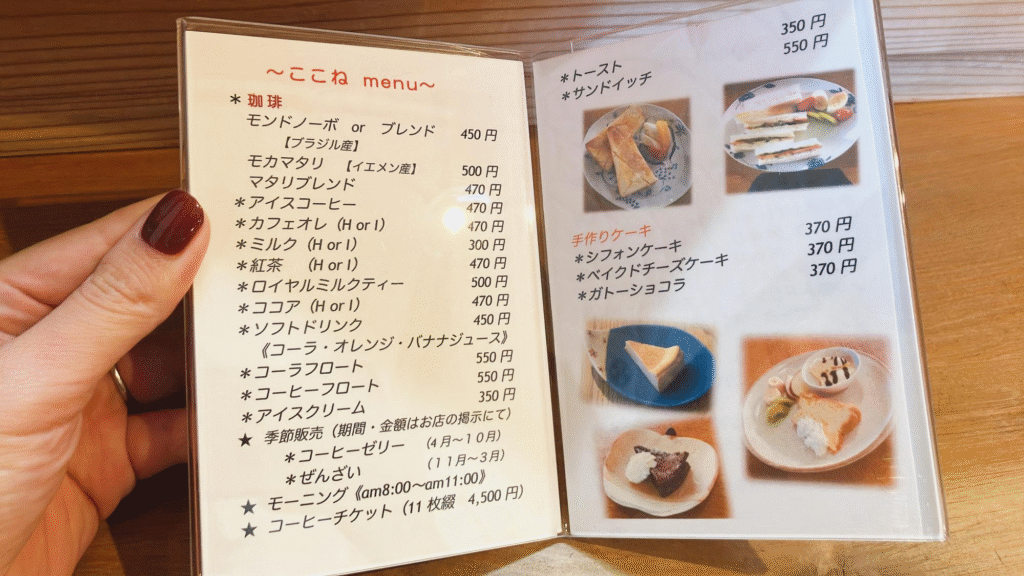 ～ここね menu～
＊珈琲
モンドノーボ or ブレンド 450円
【ブラジル産】
モカマタリ 【イエメン産】 500円
マタリブレンド 470円
＊アイスコーヒー 470円
＊カフェオレ（H or I） 470円
＊ミルク（H or I） 300円
＊紅茶 （H or I） 470円
＊ロイヤルミルクティー 500円
＊ココア（H or I） 470円
＊ソフトドリンク 450円
《コーラ・オレンジ・バナナジュース》
＊コーラフロート 550円
＊コーヒーフロート 550円
＊アイスクリーム 350円
★ 季節販売（期間・金額はお店の掲示にて）
＊コーヒーゼリー （４月～１０月）
＊ぜんざい （１１月～３月）
★ モーニング《am8:00～am11:00》
★ コーヒーチケット（11枚綴 4,500円）
＊トースト 350円
＊サンドイッチ 550円
手作りケーキ
＊シフォンケーキ 370円
＊ベイクドチーズケーキ 370円
＊ガトーショコラ 370円